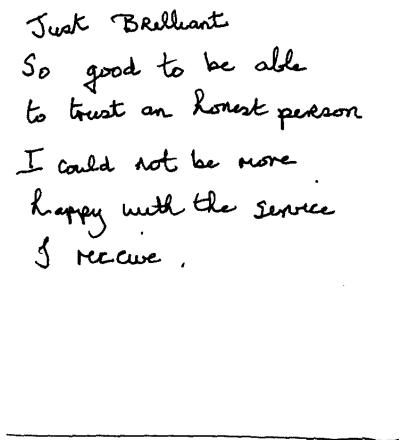 Just Brelliant
So good to be able
to trust an honest person
I could not be more
happy with the service
I receive .